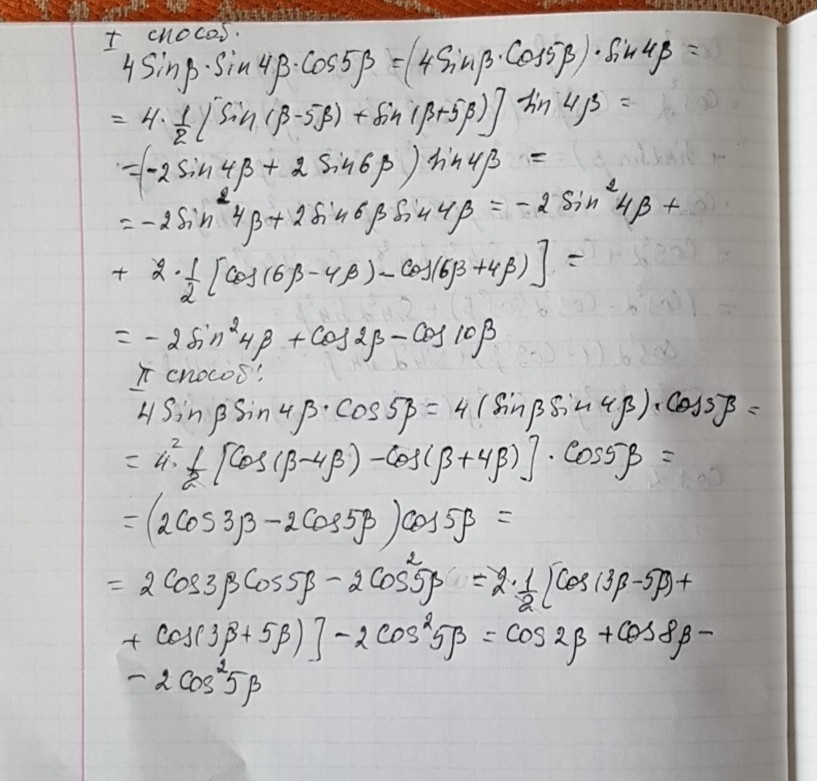 I способ.
4 Sinβ·Sin 4β·Cos5β = (4 Sinβ·Cos5β)·Sin 4β =
= 4·1/2 [Sin (β-5β) + Sin (β+5β)] Sin 4β =
= (-2 Sin 4β + 2 Sin 6β) Sin 4β =
= -2 Sin² 4β + 2 Sin 6β Sin 4β = -2 Sin² 4β +
+ 2·1/2 [Cos (6β-4β) - Cos(6β+4β)] =
= -2 Sin² 4β + Cos 2β - Cos 10β
II способ:
4 Sin β Sin 4β·Cos 5β = 4 (Sin β Sin 4β)·Cos5β =
= 4²·1/2 [Cos (β-4β) - Cos(β+4β)]·Cos5β =
= (2 Cos 3β - 2 Cos 5β) Cos 5β =
= 2 Cos3β Cos 5β - 2 Cos² 5β = 2·1/2 [Cos (3β-5β) +
+ Cos(3β+5β)] - 2 Cos² 5β = Cos 2β + Cos 8β -
- 2 Cos² 5β